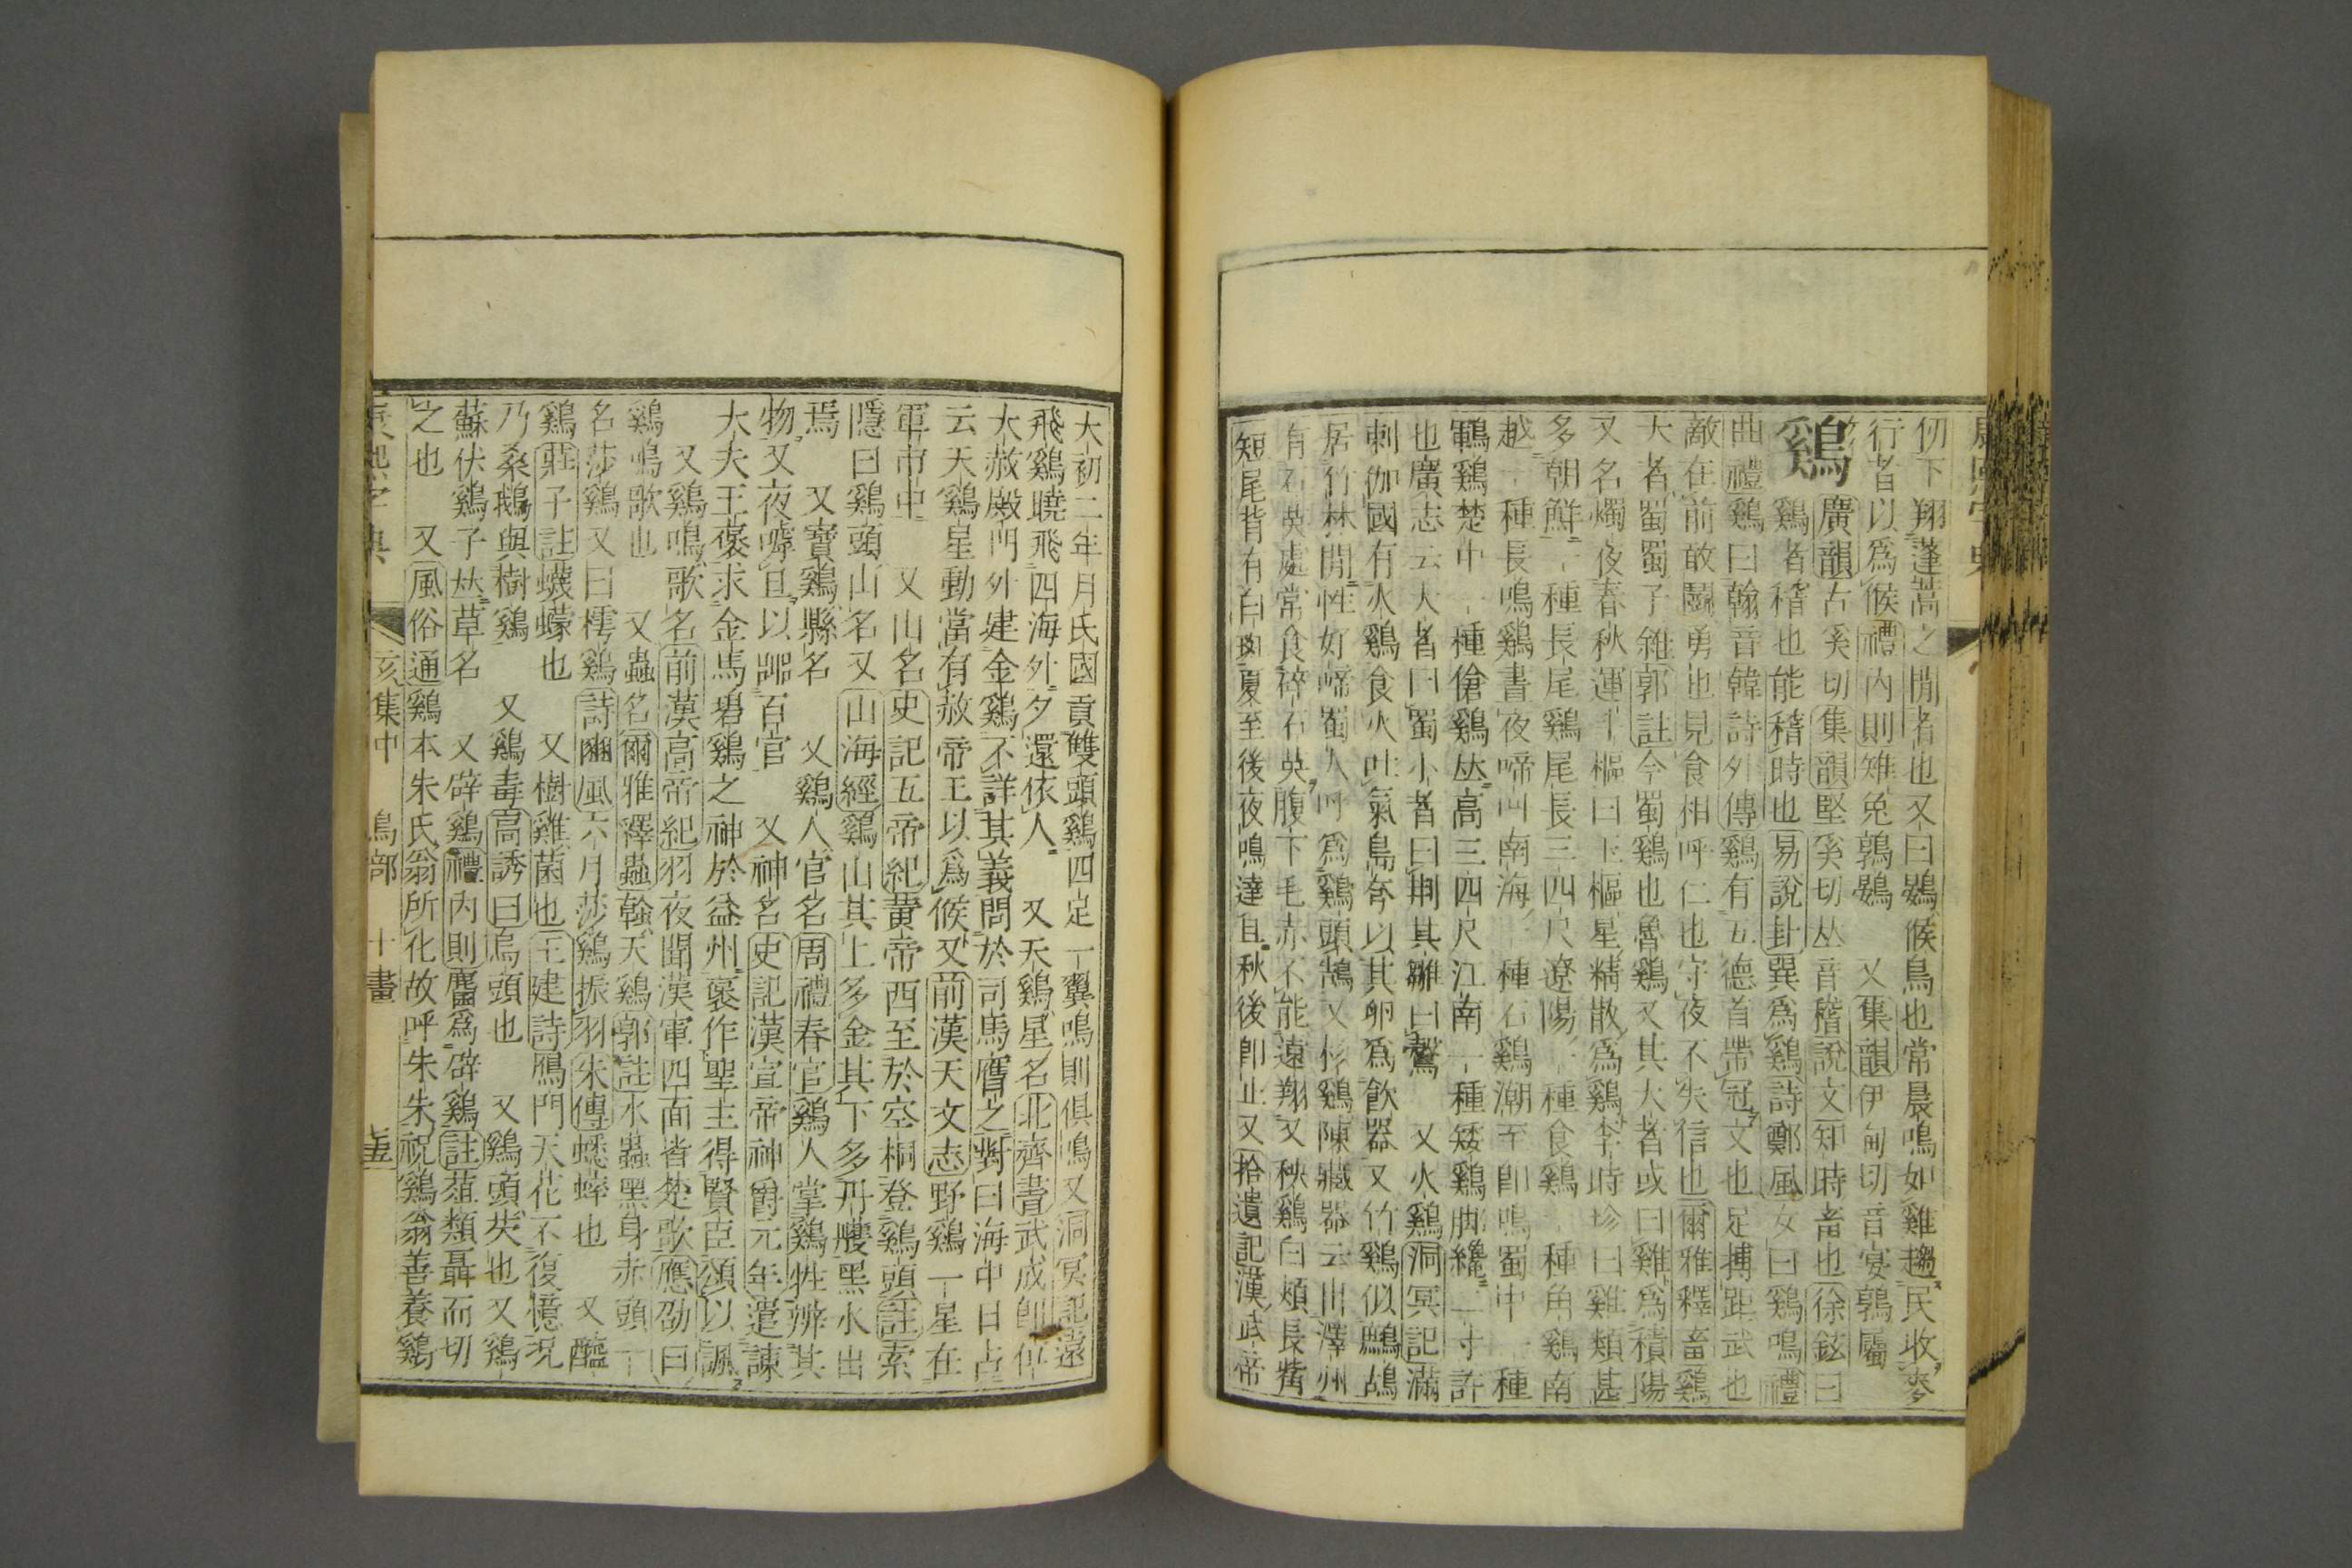 仞下翔蓬蒿之閒者也又曰鷃候鳥也常晨鳴如雞趨民收麥
行者以爲候禮內則雉兔鶉鷃　又集韻伊甸切音宴鶉屬
鷄
廣韻古奚切集韻堅奚切𠀤音稽說文知時畜也徐鉉曰
鷄者稽也能稽時也易說卦巽爲鷄詩鄭風女曰鷄鳴禮
曲禮鷄曰翰音韓詩外傳鷄有五德首帶冠文也足搏距武也
敵在前敢鬭勇也見食相呼仁也守夜不失信也爾雅釋畜鷄
大者蜀蜀子雓郭註今蜀鷄也魯鷄又其大者或曰雞爲積陽
又名燭夜春秋運斗樞曰玉樞星精散爲鷄李時珍曰雞類甚
多朝鮮一種長尾鷄尾長三四尺遼陽一種食鷄一種角鷄南
越一種長鳴鷄晝夜啼叫南海一種石鷄潮至卽鳴蜀中一種
鶤鷄楚中一種傖鷄𠀤高三四尺江南一種矮鷄脚纔二寸許
也廣志云大者曰蜀小者曰荆其雛曰鷇　又火鷄洞冥記滿
刺伽國有火鷄食火吐氣鳥夸以其卵爲飮器又竹鷄似鷓鴣
居竹林閒性好啼蜀人呼爲鷄頭鶻又杉鷄陳藏器云出澤州
有石英處常食碎石英腹下毛赤不能遠翔又秧鷄白頰長觜
短尾背有白斑夏至後夜鳴達旦秋後卽止又拾遺記漢武帝
太初二年月氏國貢雙頭鷄四足一翼鳴則俱鳴又洞冥記遠
飛鷄曉飛四海外夕還依人　又天鷄星名北齊書武成卽位
大赦殿門外建金鷄不詳其義問於司馬膺之對曰海中日占
云天鷄星動當有赦帝王以爲候又前漢天文志野鷄一星在
軍市中　又山名史記五帝紀黃帝西至於空桐登鷄頭註索
隱曰鷄頭山名又山海經鷄山其上多金其下多丹雘黑水出
焉　又寶鷄縣名　又鷄人官名周禮春官鷄人掌鷄牲辨其
物又夜嘑旦以嘂百官　又神名史記漢宣帝神爵元年遣諫
大夫王褒求金馬碧鷄之神於益州褒作聖主得賢臣頌以諷
又鷄鳴歌名前漢高帝紀羽夜聞漢軍四面皆楚歌應劭曰
鷄鳴歌也　又蟲名爾雅釋蟲螒天鷄郭註水蟲黑身赤頭一
名莎鷄又曰樗鷄詩豳風六月莎鷄振羽朱傳蟋蟀也　又醯
鷄莊子註蠛蠓也　又樹雞菌也王建詩鴈門天花不復憶况
乃桑鵝與樹鷄　又鷄毒高誘曰烏頭也　又鷄頭芡也又鷄
蘇伏鷄子𠀤草名　又辟鷄禮內則麕爲辟鷄註菹類聶而切
之也　又風俗通鷄本朱氏翁所化故呼朱朱祝鷄翁善養鷄
亥集中　鳥部　十畫